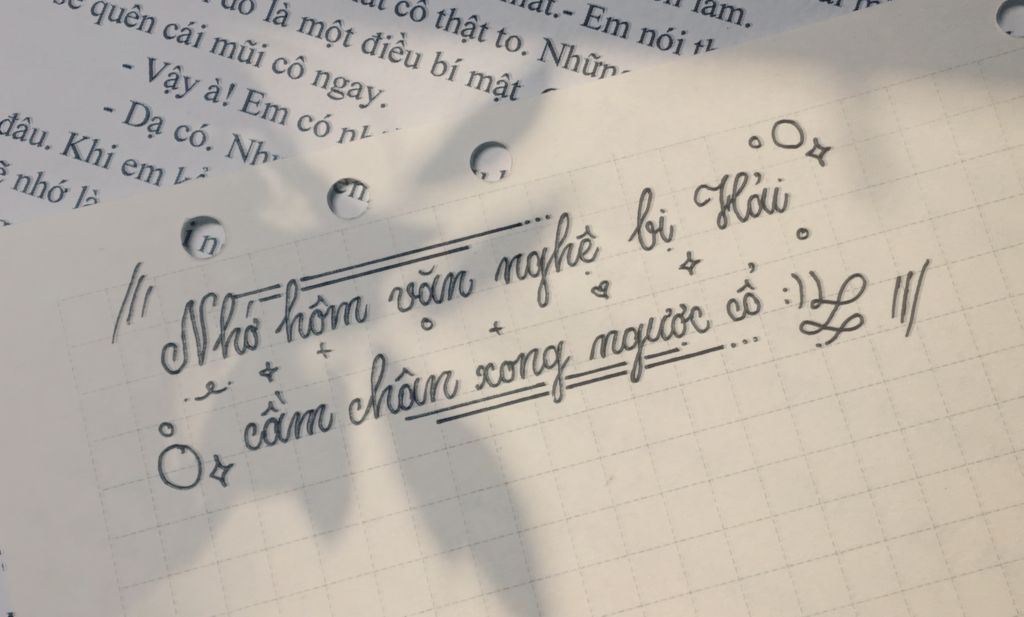 mật.- Em nói
cô thật to. Những
là một điều bí mật
quên cái mũi cô ngay.
- Vậy à! Em có
- Dạ có.
đâu. Khi em
nhớ là
in
en,
Nhớ hôm văn nghệ bị Hải
cầm chân xong ngược cổ :))